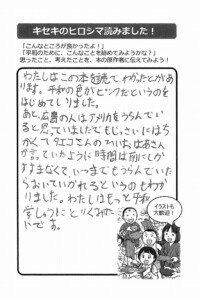 キセキのヒロシマ読みました！
「こんなところが良かったよ！」
「平和のために、こんなことを始めてみようかな？」
思ったこと、考えたことを、本の原作者に伝えてみよう！
わたしはこの本を読んでわかったことがあ
ります。平和の色がピンクだというのを
はじめてしりました。
あと、広島の人はアメリカをうらんでい
ると思っていましたがもじっさいにはち
がくてタエコさんのひいおばあさん
が言っていたように時間は前にしか
すすまなくていつまでもうらんでいた
らおいていかれるというのもわか
りました。わたしはもっと平和
学しゅうにとりくみた
いです。
イラストも
大歓迎！